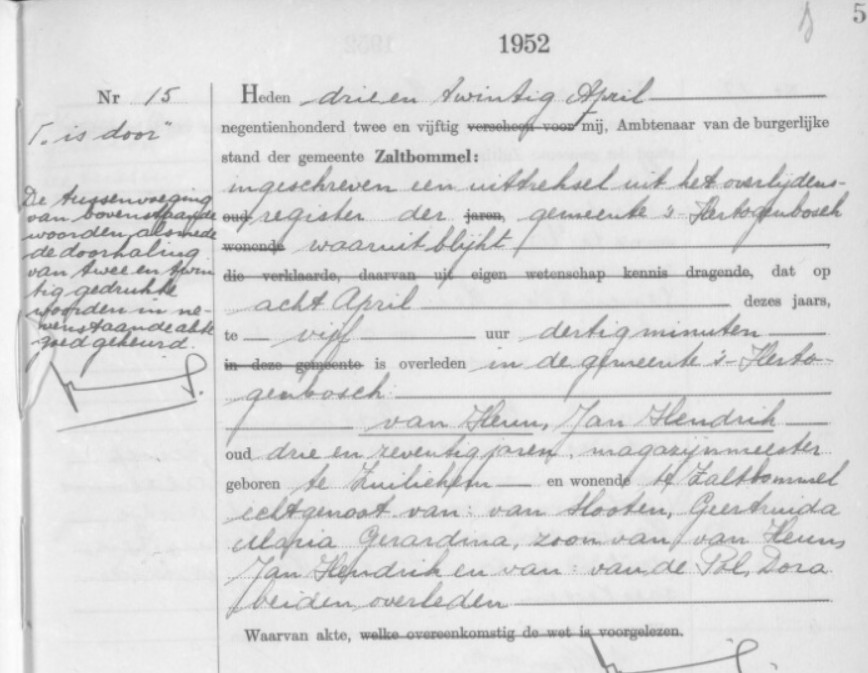 5
1952
Nr 15
Γ. is door"
De tussenvoeging
van bovenstaande
woorden, alsmede
de doorhaling
van twee en twin
tig gedrukte
woorden in ne-
venstaande akte
goedgekeurd.
Heden drie en twintig April
negentienhonderd twee en vijftig verscheen voor Γ mij, Ambtenaar van de burgerlijke
stand der gemeente Zaltbommel:
ingeschreven een uittreksel uit het overlijdens-
oud register der jaren, gemeente 's-Hertogenbosch
wonende waaruit blijkt,
die verklaarde, daarvan uit eigen wetenschap kennis dragende, dat op
acht April dezes jaars,
te vijf uur dertig minuten
in deze gemeente is overleden in de gemeente 's-Herto-
genbosch:
van Heun, Jan Hendrik
oud drie en zeventig jaren, magazijnmeester
geboren te Zuilichem en wonende te Zaltbommel
echtgenoot van: van Hooten, Geertruida
Maria Gerardina, zoon van van Heun,
Jan Hendrik en van: van de Pol, Dora
beiden overleden
Waarvan akte, welke overeenkomstig de wet is voorgelezen.